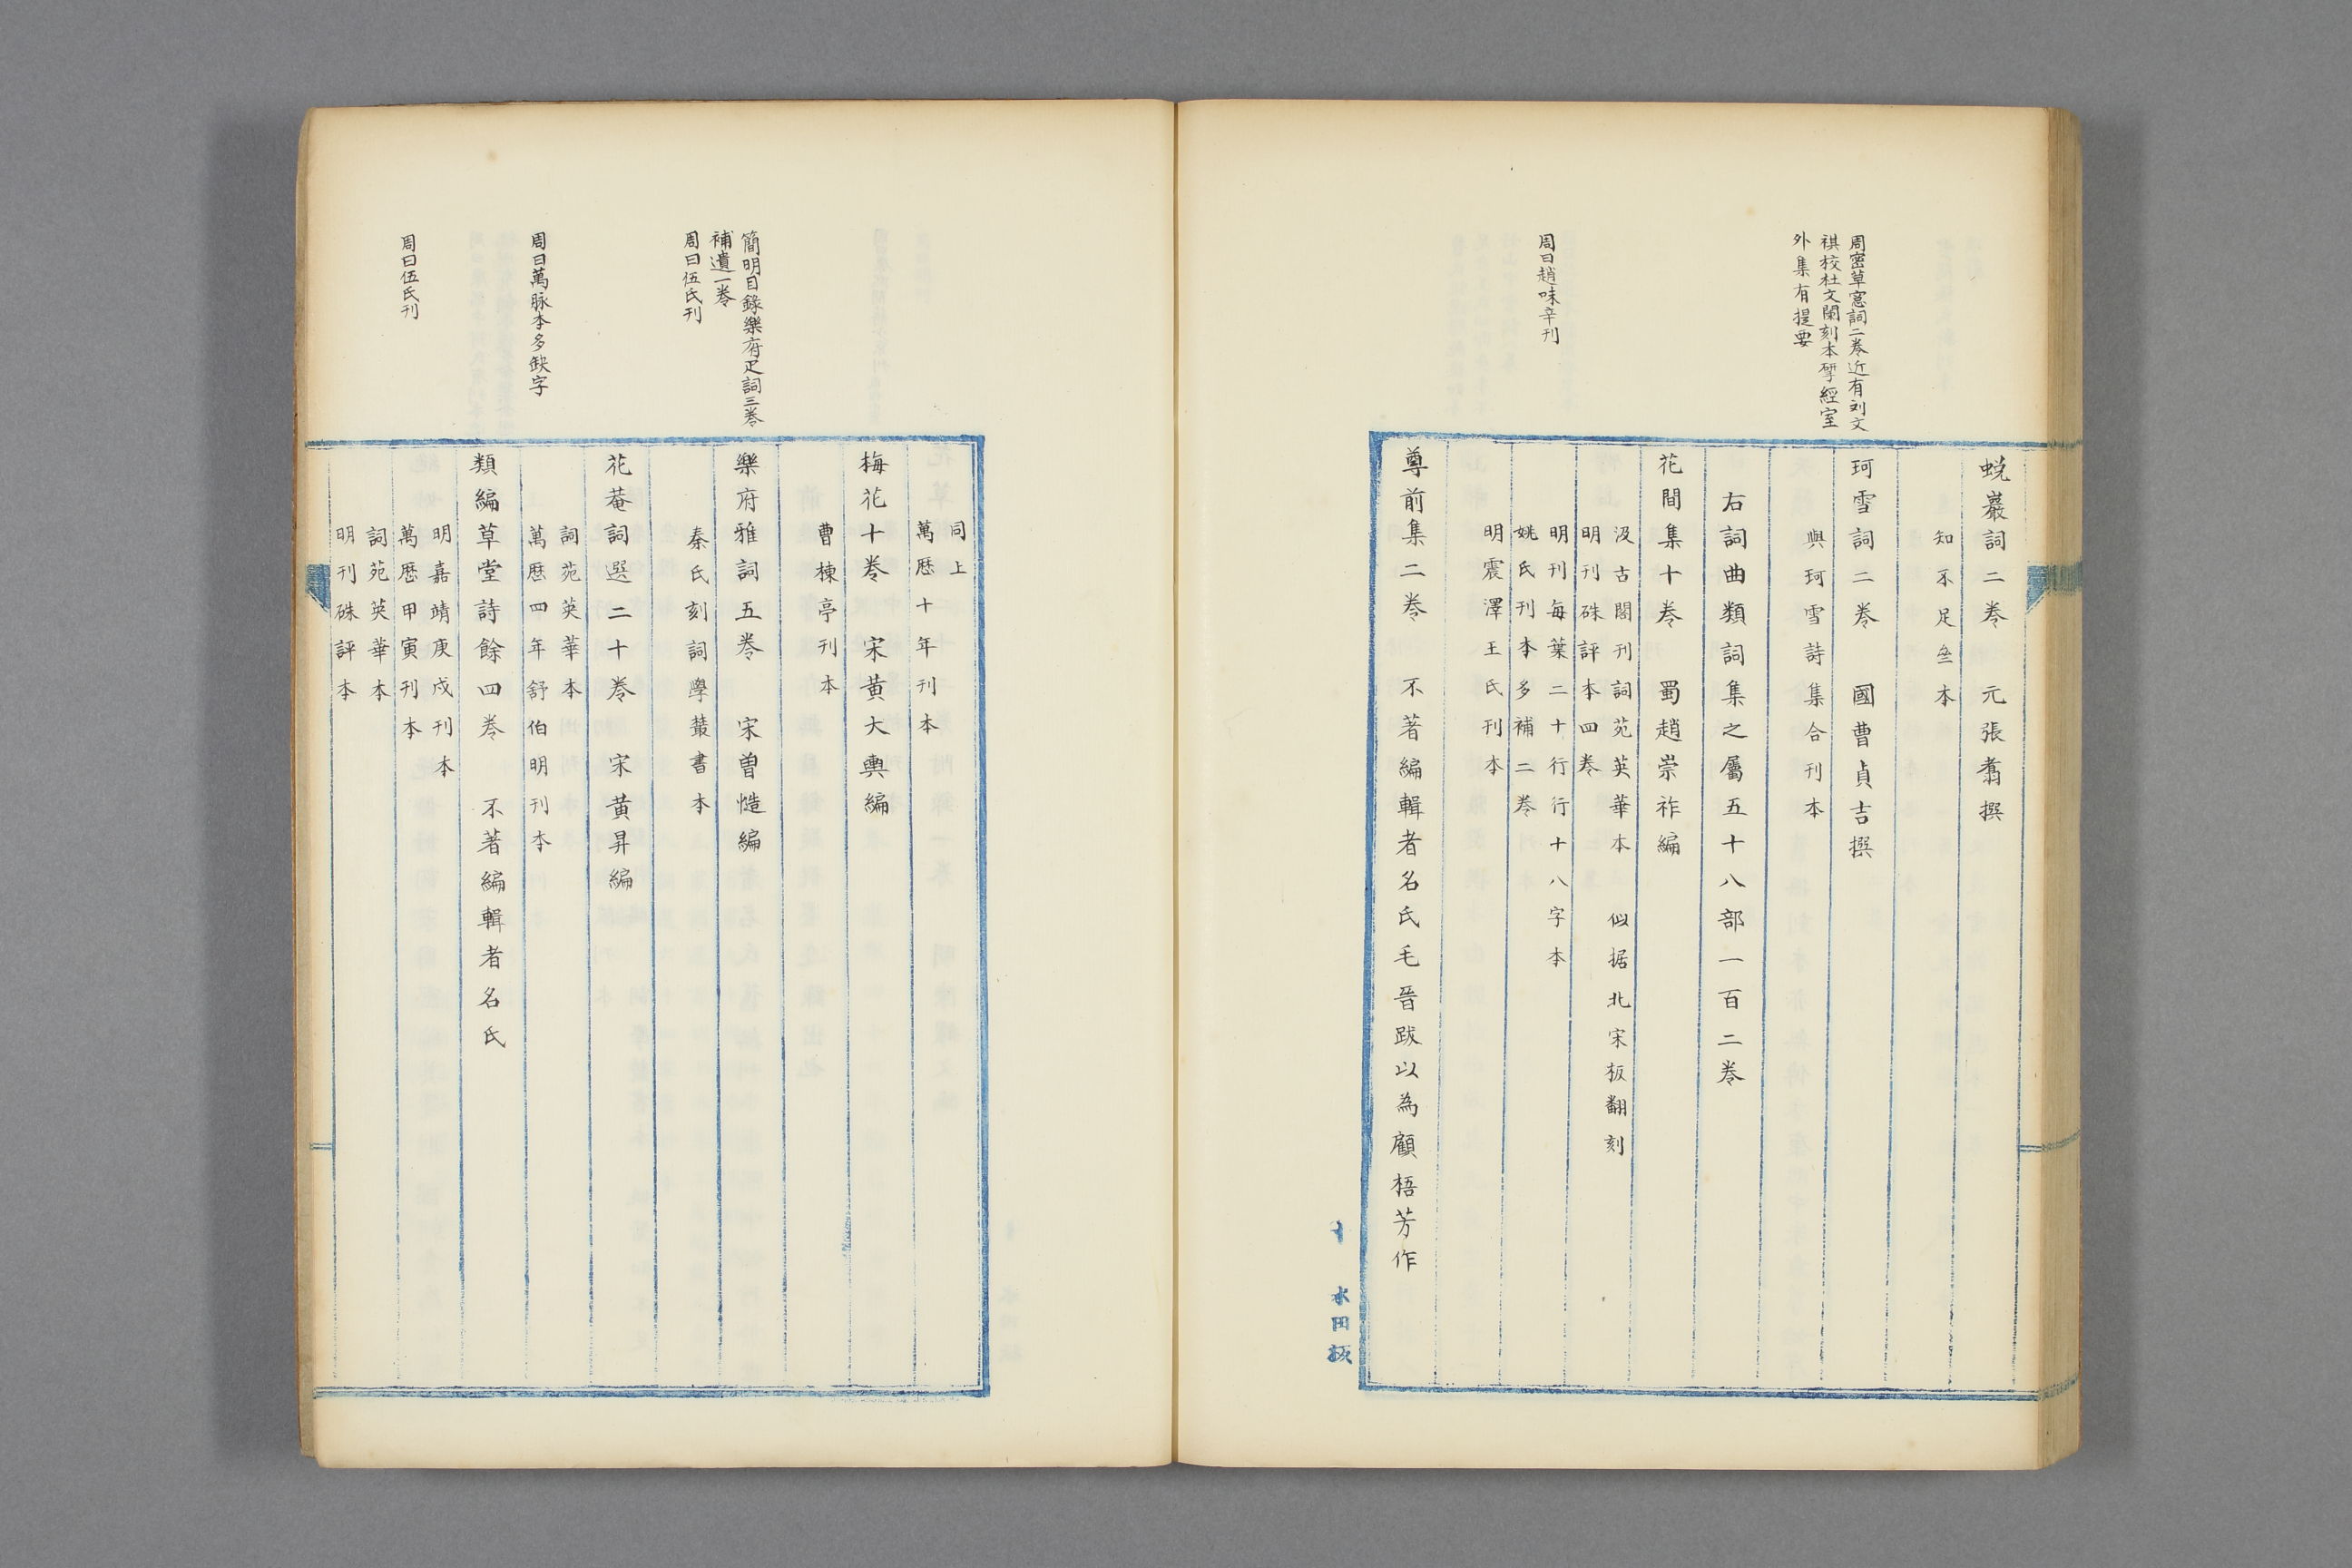 周密草窓詞二巻近有刘文
祺校杜文闌刻本揅經室
外集有提要
周曰趙味辛刊
蛻巖詞二巻　元張翥撰
知不足叁本
珂雪詞二巻　國曹貞吉撰
與珂雪詩集合刊本
右詞曲類詞集之屬五十八部一百二巻
花間集十巻　蜀趙崇祚編
汲古閣刊詞苑英華本　似据北宋板翻刻
明刊硃評本四巻
明刊每葉二十行行十八字本
姚氏刊本多補二巻
明震澤王氏刊本
尊前集二巻　不著編輯者名氏毛晉跋以為顧梧芳作
十　水田板
簡明目錄樂府疋詞三巻
補遺一巻
周曰伍氏刊
周曰萬脉本多缺字
周曰伍氏刊
同上
萬厯十年刊本
梅花十巻　宋黃大輿編
曹棟亭刊本
樂府雅詞五巻　宋曾慥編
秦氏刻詞學叢書本
花菴詞選二十巻　宋黃昇編
詞苑英華本
萬厯四年舒伯明刊本
類編草堂詩餘四巻　不著編輯者名氏
明嘉靖庚戌刊本
萬厯甲寅刊本
詞苑英華本
明刊硃評本